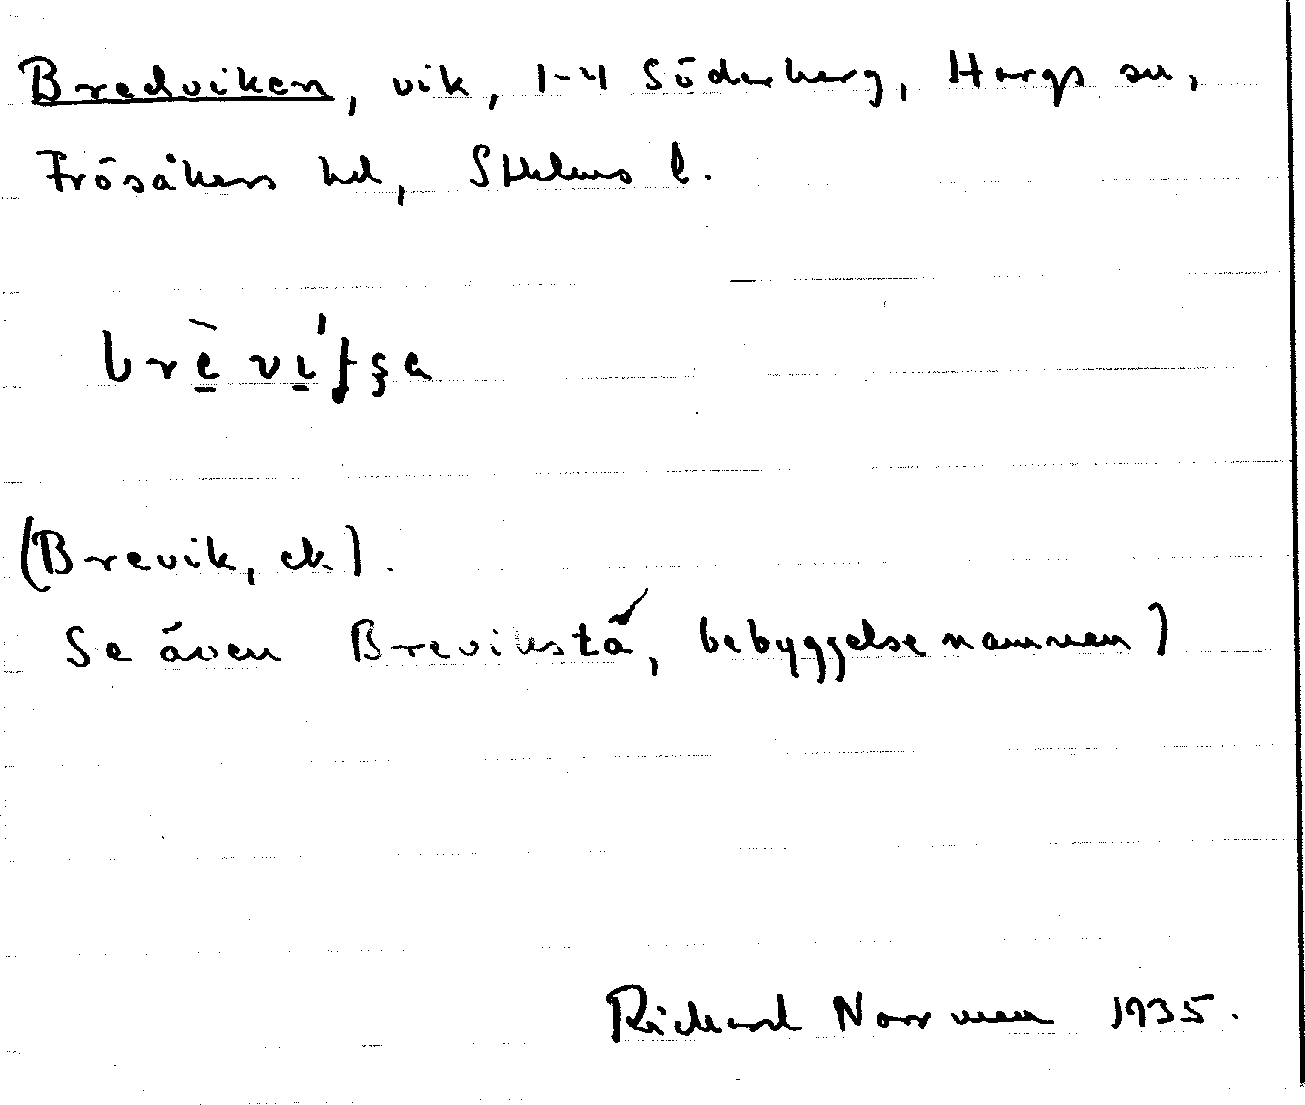 Bredviken, vik, 1-4 Söderberg, Hargs sn,
Frösåkers hd, Sthlms l.
(Brevik, ek).
Se även Brevikstå, bebyggelsenamnen)
Richard Norrman 1935.